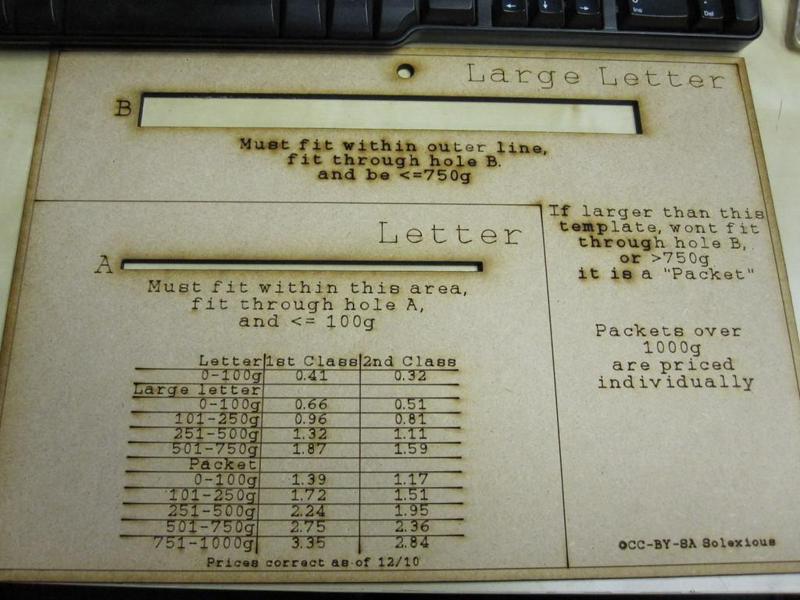 Large Letter
B
Must fit within outer line,
fit through hole B.
and be <=750g
Letter
A
Must fit within this area,
fit through hole A,
and <= 100g
If larger than this
template, wont fit
through hole B,
or >750g
it is a "Packet"
Packets over
1000g
are priced
individually
Letter 1st Class 2nd Class
0-100g 0.41 0.32
Large letter
0-100g 0.66 0.51
101-250g 0.96 0.81
251-500g 1.32 1.11
501-750g 1.87 1.59
Packet
0-100g 1.39 1.17
101-250g 1.72 1.51
251-500g 2.24 1.95
501-750g 2.75 2.36
751-1000g 3.35 2.84
Prices correct as of 12/10
©CC-BY-SA Solexious